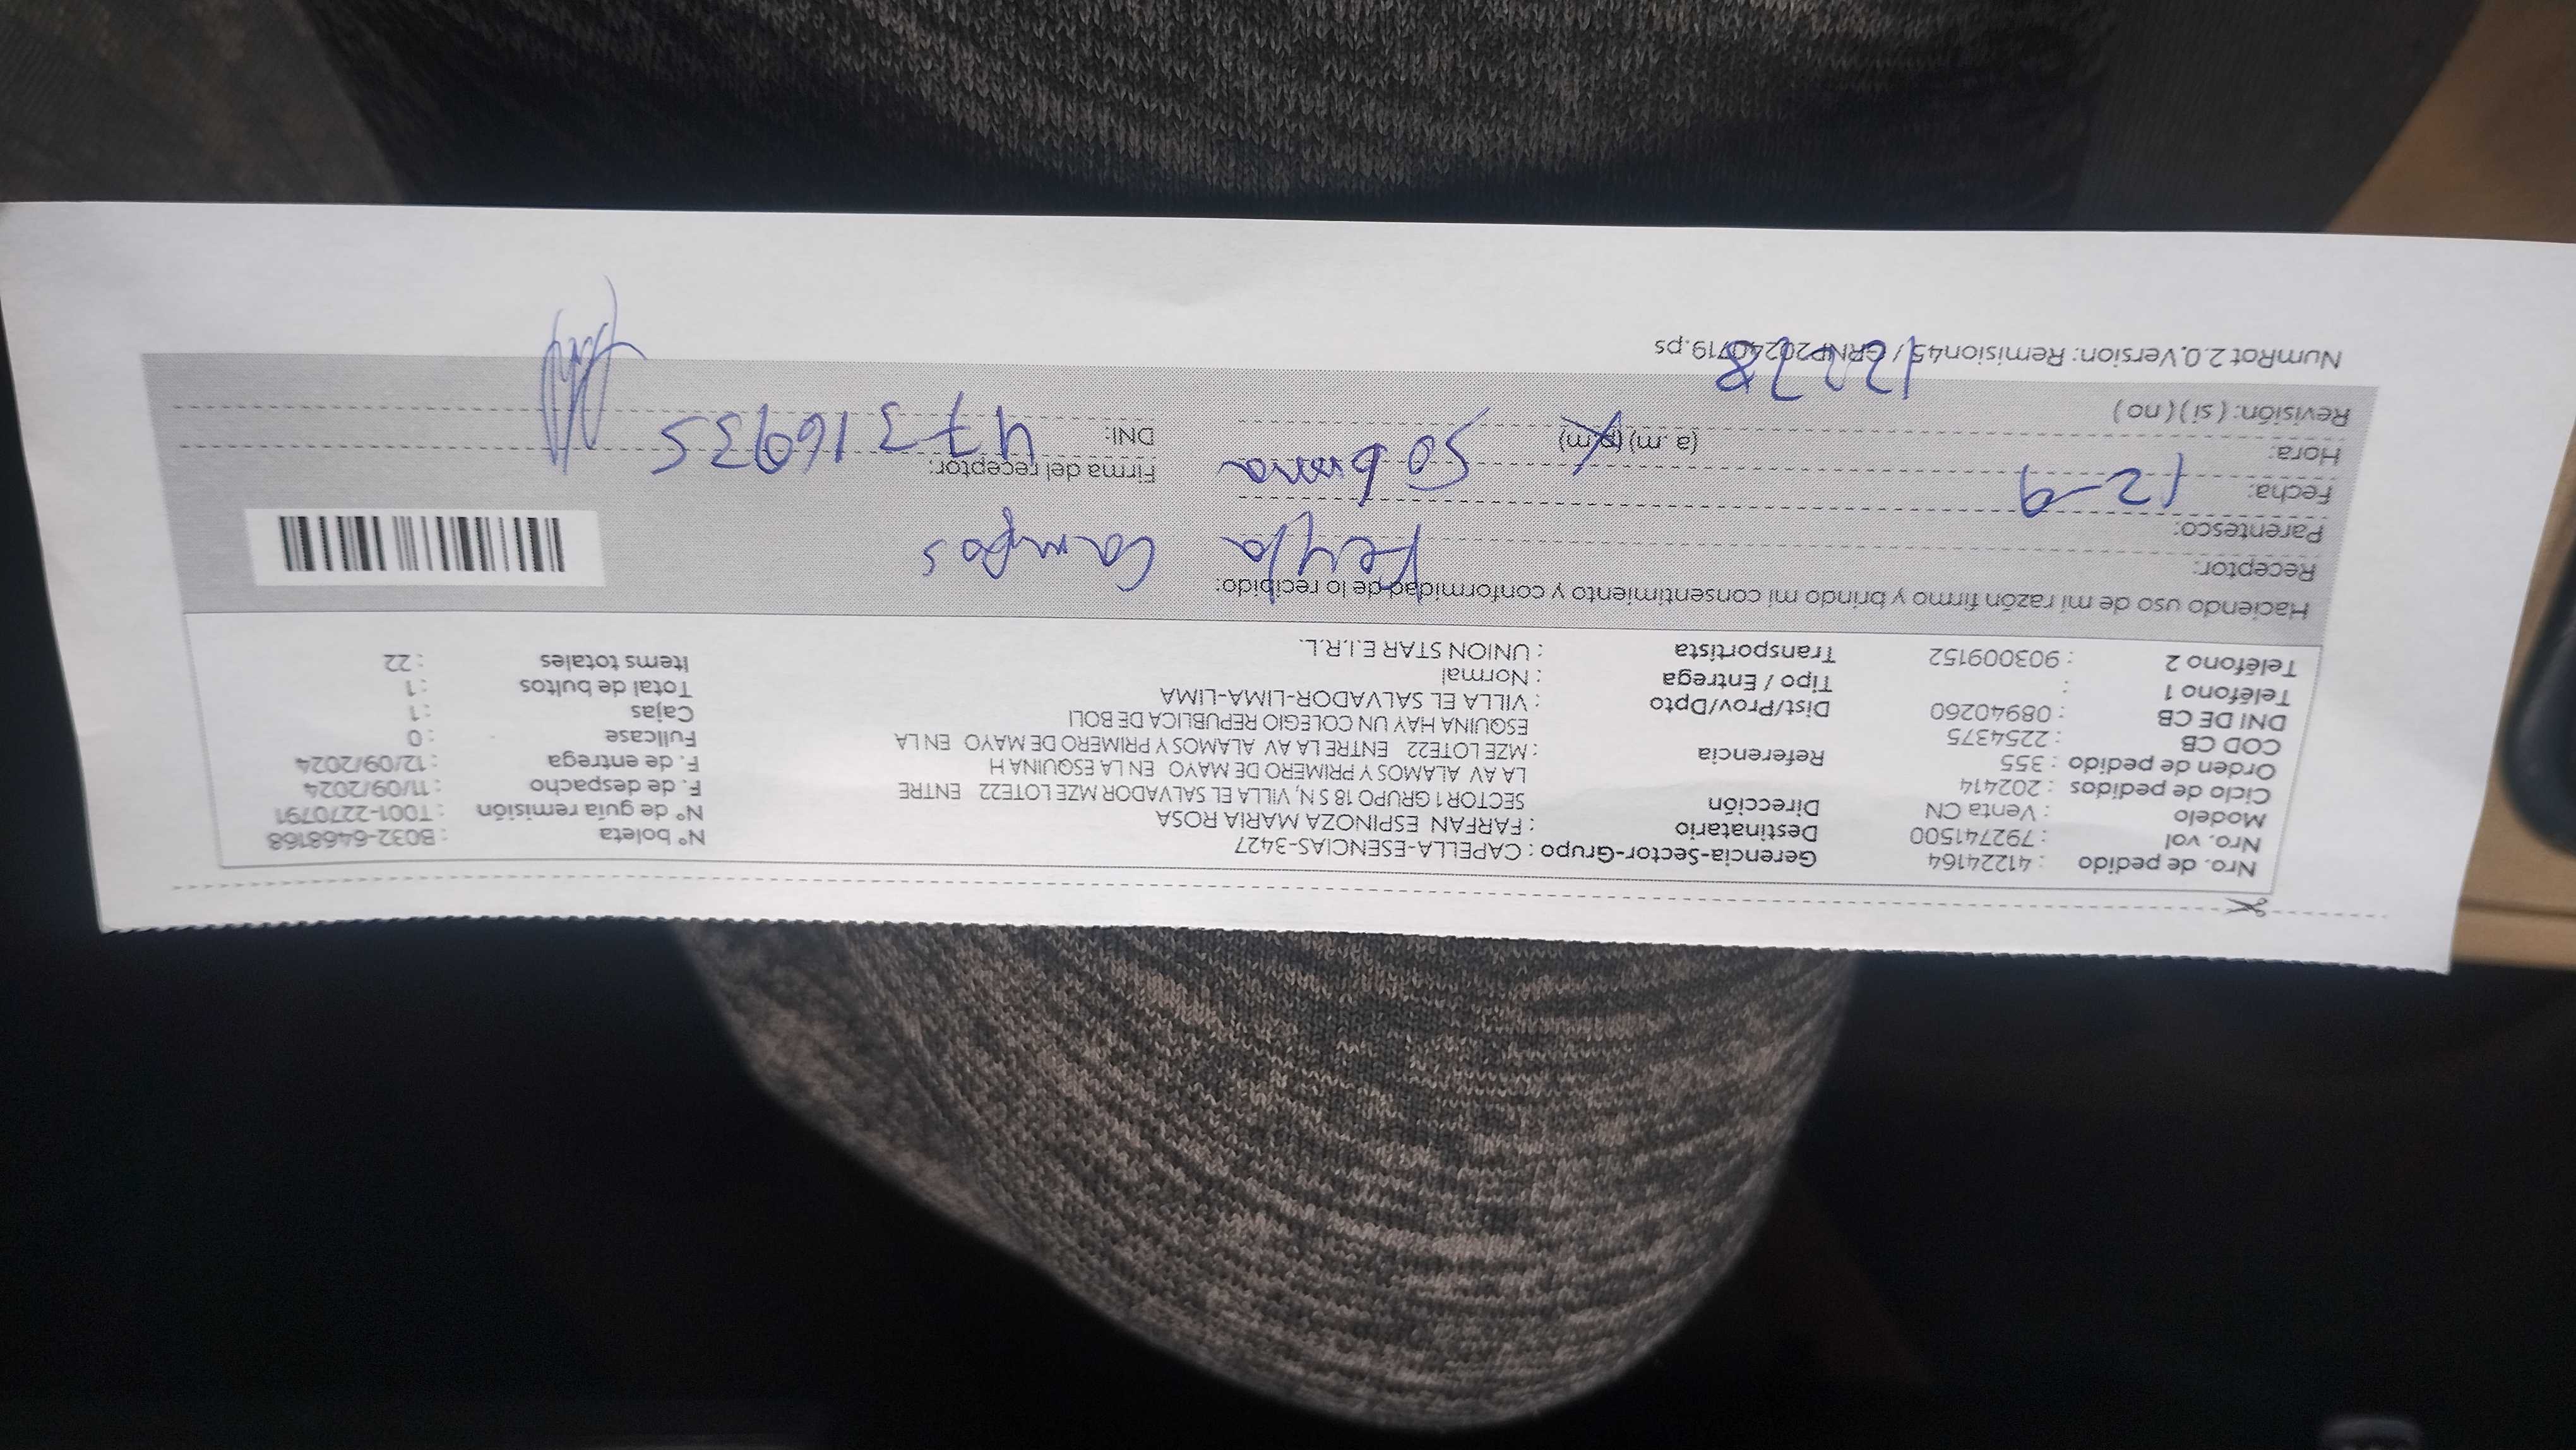 Nro. de pedido : 41224164 Gerencia-Sector-Grupo : CAPELLA-ESENCIAS-3427 N° boleta : B032-6468168
Nro. vol : 792741500 Destinatario : FARFAN ESPINOZA MARIA ROSA N° de guía remisión : T001-2270791
Modelo : Venta CN Dirección SECTOR 1 GRUPO 18 S N, VILLA EL SALVADOR MZE LOTE22 ENTRE F. de despacho : 11/09/2024
Ciclo de pedidos : 202414 LA AV ALAMOS Y PRIMERO DE MAYO EN LA ESQUINA H F. de entrega : 12/09/2024
Orden de pedido : 355 Referencia : MZE LOTE22 ENTRE LA AV ALAMOS Y PRIMERO DE MAYO EN LA Fullcase : 0
COD CB : 2254375 ESQUINA HAY UN COLEGIO REPUBLICA DE BOLI Cajas : 1
DNI DE CB : 08940260 Dist/Prov/Dpto : VILLA EL SALVADOR-LIMA-LIMA Total de bultos : 1
Teléfono 1 : Tipo / Entrega : Normal Items totales : 22
Teléfono 2 : 903009152 Transportista : UNION STAR E.I.R.L.
Haciendo uso de mi razón firmo y brindo mi consentimiento y conformidad de lo recibido:
Receptor: Campos
Parentesco: Sobrina
Fecha: 12-9
Hora: (a .m) (p.m) Firma del receptor:
Revisión: ( si ) ( no ) DNI: 47316935
NumRot 2.0,Version: Remision45 / GRNP20240719.ps